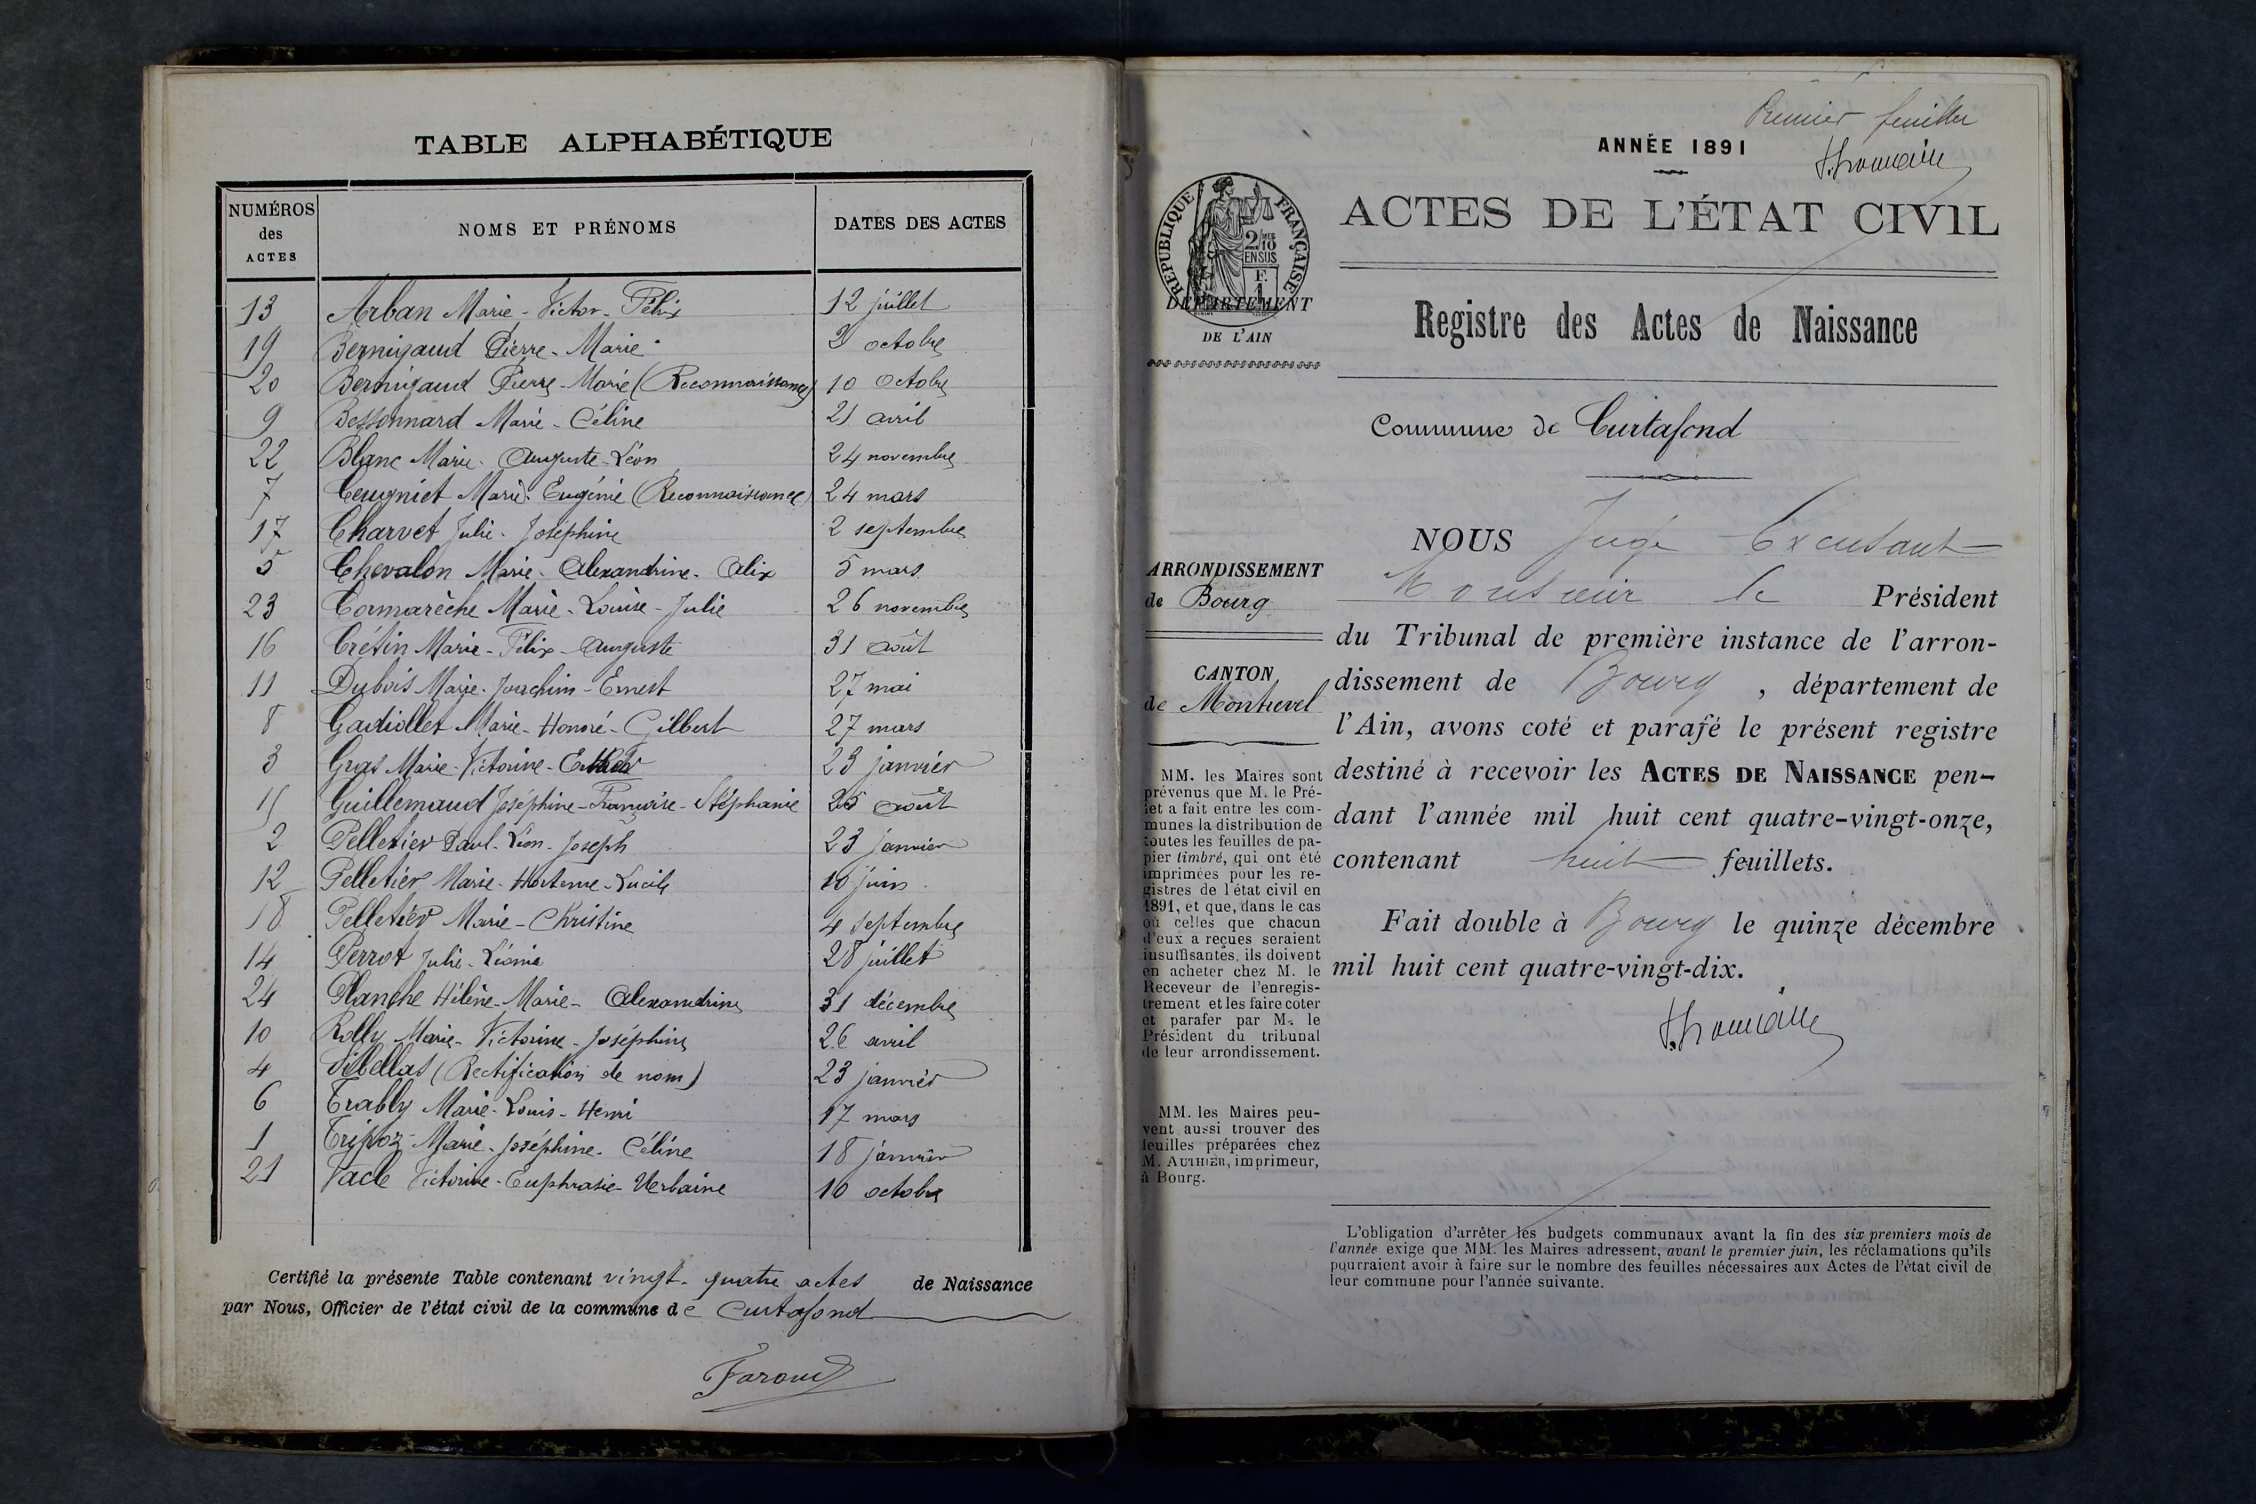 TABLE ALPHABÉTIQUE
NUMÉROS des ACTES NOMS ET PRÉNOMS DATES DES ACTES
13 Arban Marie-Victor-Félix 12 juillet
19 Bernigaud Pierre-Marie 2 octobre
20 Bernigaud Pierre-Marie (Reconnaissance) 10 octobre
9 Bessonnard Marie-Céline 21 avril
22 Blanc Marie-Auguste-Léon 24 novembre
7 Ceugniet Marie-Eugénie (Reconnaissance) 24 mars
17 Charvet Julie-Joséphine 2 septembre
5 Chevalon Marie-Alexandrine-Alix 5 mars
23 Cormarèche Marie-Louise-Julie 26 novembre
16 Crétin Marie-Félix-Auguste 31 août
11 Dubois Marie-Joachim-Ernest 27 mai
8 Gadiollet Marie-Honoré-Gilbert 27 mars
3 Gras Marie-Victorine-Esther 23 janvier
15 Guillemaud Joséphine-Françoise-Stéphanie 25 août
2 Pelletier Paul-Léon-Joseph 23 janvier
12 Pelletier Marie-Hortense-Lucile 10 juin
18 Pelletier Marie-Christine 4 septembre
14 Perrot Julie-Léonie 28 juillet
24 Planche Hélène-Marie-Alexandrine 31 décembre
10 Rolly Marie-Victorine-Joséphine 26 avril
4 Sibellas (Rectification de nom) 23 janvier
6 Trably Marie-Louis-Henri 17 mars
1 Tripoz Marie-Joséphine-Céline 18 janvier
21 Vacle Victorine-Euphrasie-Urbaine 10 octobre
Certifié la présente Table contenant vingt-quatre actes de Naissance
par Nous, Officier de l'état civil de la commune de Curtafond
Premier feuillet
ANNÉE 1891
ACTES DE L'ÉTAT CIVIL
RÉPUBLIQUE FRANÇAISE
2/10 EN SUS
DÉPARTEMENT
DE L'AIN
Registre des Actes de Naissance
Commune de Curtafond
ARRONDISSEMENT
de Bourg
CANTON
de Montrevel
MM. les Maires sont
prévenus que M. le Pré-
fet a fait entre les com-
munes la distribution de
toutes les feuilles de pa-
pier timbré, qui ont été
imprimées pour les re-
gistres de l'état civil en
1891, et que, dans le cas
où celles que chacun
d'eux a reçues seraient
insuffisantes, ils doivent
en acheter chez M. le
Receveur de l'enregis-
trement et les faire coter
et parafer par M. le
Président du tribunal
de leur arrondissement.
MM. les Maires peu-
vent aussi trouver des
feuilles préparées chez
M. AUTHIER, imprimeur,
à Bourg.
NOUS Juge Excusant
Monsieur le Président
du Tribunal de première instance de l'arron-
dissement de Bourg, département de
l'Ain, avons coté et parafé le présent registre
destiné à recevoir les ACTES DE NAISSANCE pen-
dant l'année mil huit cent quatre-vingt-onze,
contenant huit feuillets.
Fait double à Bourg le quinze décembre
mil huit cent quatre-vingt-dix.
L'obligation d'arrêter les budgets communaux avant la fin des six premiers mois de
l'année exige que MM. les Maires adressent, avant le premier juin, les réclamations qu'ils
pourraient avoir à faire sur le nombre des feuilles nécessaires aux Actes de l'état civil de
leur commune pour l'année suivante.